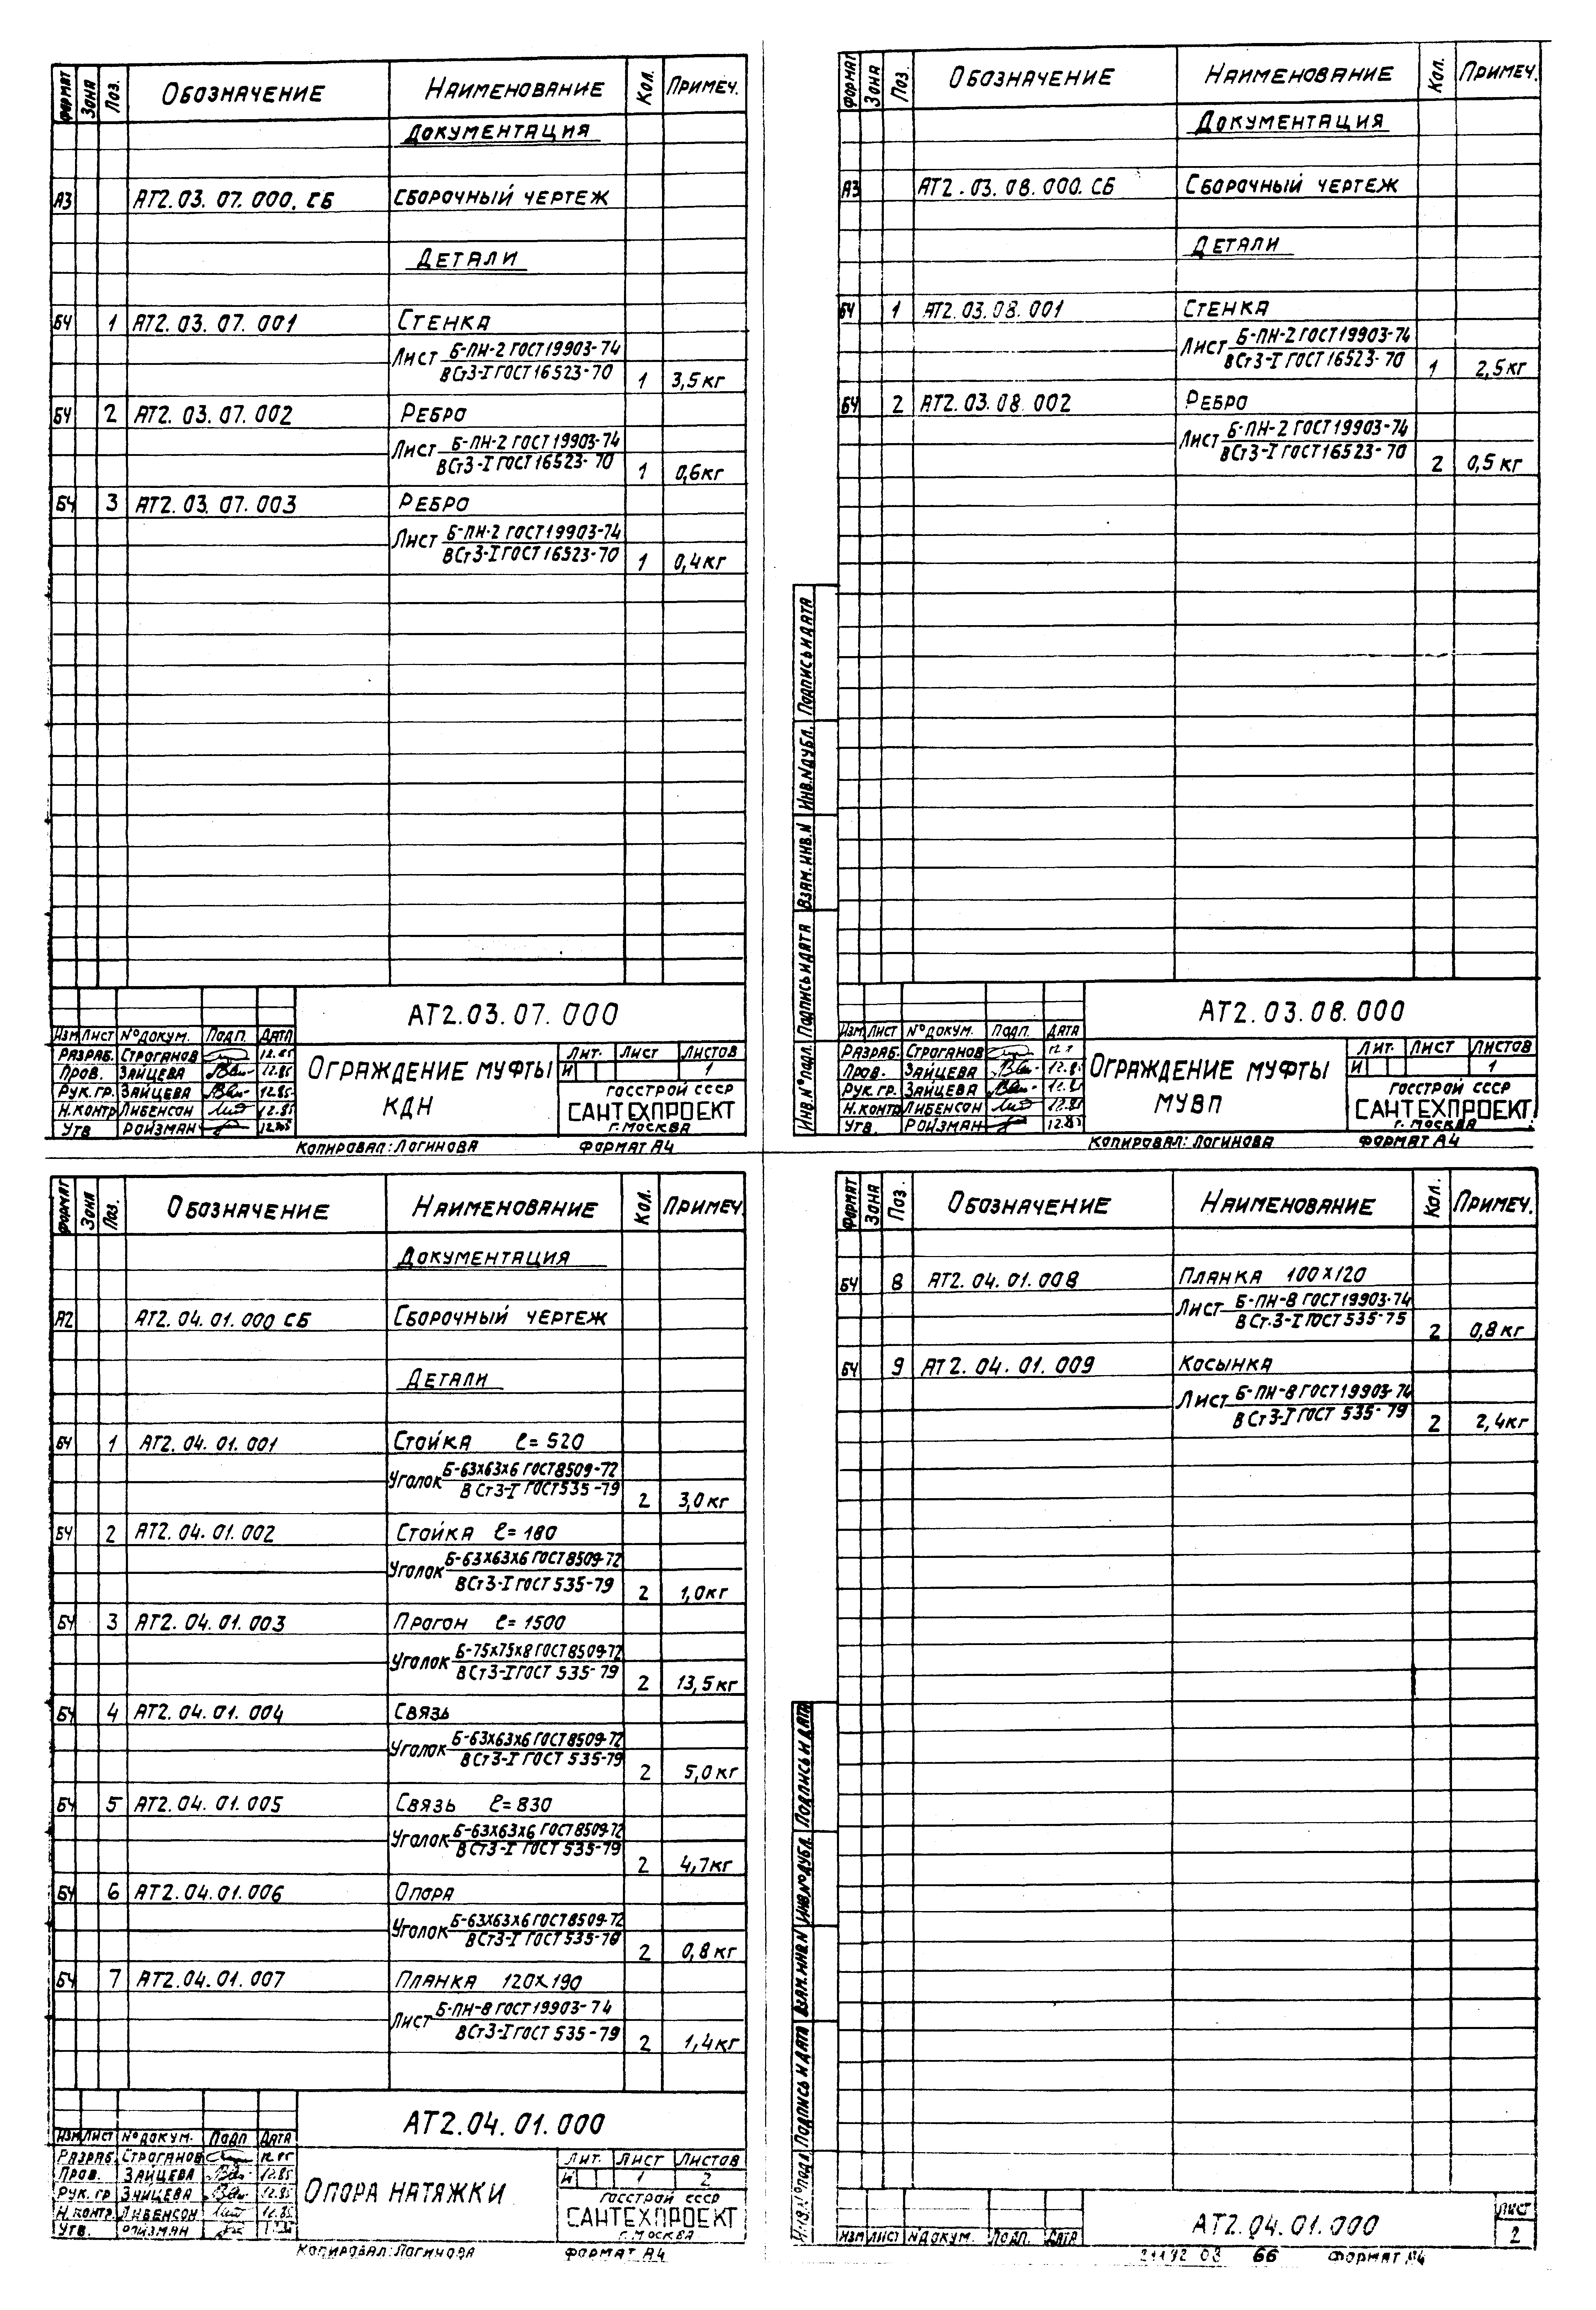 Формат Зона Поз. Обозначение Наименование Кол. Примеч.
Документация
А3 АТ2.03.07.000.СБ Сборочный чертеж
Детали
БЧ 1 АТ2.03.07.001 Стенка
Лист Б-ПН-2 ГОСТ 19903-74
ВСт3-I ГОСТ 16523-70 1 3,5кг
БЧ 2 АТ2.03.07.002 Ребро
Лист Б-ПН-2 ГОСТ 19903-74
ВСт3-I ГОСТ 16523-70 1 0,6кг
БЧ 3 АТ2.03.07.003 Ребро
Лист Б-ПН-2 ГОСТ 19903-74
ВСт3-I ГОСТ 16523-70 1 0,4кг
АТ2.03.07.000
Изм Лист №докум. Подп. Дата
Разраб. Строганов 12.85
Пров. Зайцева 12.85
Рук.гр. Зайцева 12.85
Н.контр Либенсон 12.85
Утв Ройзман 12.85
Ограждение муфты
КДН
Лит. Лист Листов
И 1
Госстрой СССР
САНТЕХПРОЕКТ
г.Москва
Копировал: Логинова Формат А4
Формат Зона Поз. Обозначение Наименование Кол. Примеч.
Документация
А3 АТ2.03.08.000.СБ Сборочный чертеж
Детали
БЧ 1 АТ2.03.08.001 Стенка
Лист Б-ПН-2 ГОСТ 19903-74
ВСт3-I ГОСТ 16523-70 1 2,5кг
БЧ 2 АТ2.03.08.002 Ребро
Лист Б-ПН-2 ГОСТ 19903-74
ВСт3-I ГОСТ 16523-70 2 0,5кг
Инв.№подл. Подпись и дата Взам.инв.N Инв.Nдубл. Подпись и дата
АТ2.03.08.000
Изм Лист №докум. Подп. Дата
Разраб. Строганов
Пров. Зайцева 12.85
Рук.гр. Зайцева 12.85
Н.контр Либенсон 12.85
Утв. Ройзман 12.85
Ограждение муфты
МУВП
Лит. Лист Листов
И 1
Госстрой СССР
САНТЕХПРОЕКТ
г.Москва
Копировал: Логинова Формат А4
Формат Зона Поз. Обозначение Наименование Кол. Примеч.
Документация
А2 АТ2.04.01.000 СБ Сборочный чертеж
Детали
БЧ 1 АТ2.04.01.001 Стойка ℓ=520
Уголок Б-63х63х6 ГОСТ 8509-72
ВСт3-I ГОСТ 535-79 2 3,0кг
БЧ 2 АТ2.04.01.002 Стойка ℓ=180
Уголок Б-63х63х6 ГОСТ 8509-72
ВСт3-I ГОСТ 535-79 2 1,0кг
БЧ 3 АТ2.04.01.003 Прогон ℓ=1500
Уголок Б-75х75х8 ГОСТ 8509-72
ВСт3-I ГОСТ 535-79 2 13,5кг
БЧ 4 АТ2.04.01.004 Связь
Уголок Б-63х63х6 ГОСТ 8509-72
ВСт3-I ГОСТ 535-79 2 5,0кг
БЧ 5 АТ2.04.01.005 Связь ℓ=830
Уголок Б-63х63х6 ГОСТ 8509-72
ВСт3-I ГОСТ 535-79 2 4,7кг
БЧ 6 АТ2.04.01.006 Опора
Уголок Б-63х63х6 ГОСТ 8509-72
ВСт3-I ГОСТ 2 0,8кг
БЧ 7 АТ2.04.01.007 Планка 120х190
Лист Б-ПН-8 ГОСТ 19903-74
ВСт3-I ГОСТ 535-79 2 1,4кг
АТ2.04.01.000
Изм Лист №докум. Подп Дата
Разраб. Строганов
Пров. Зайцева 12.85
Рук.гр Зайцева 12.85
Н.контр. Либенсон 12.85
Утв. Ройзман
Опора натяжки
Лит. Лист Листов
И 1 2
Госстрой СССР
САНТЕХПРОЕКТ
г.Москва
Копировал: Логинова Формат А4
Формат Зона Поз. Обозначение Наименование Кол. Примеч.
БЧ 8 АТ2.04.01.008 Планка 100х120
Лист Б-ПН-8 ГОСТ 19903-74
ВСт.3-I ГОСТ 535-75 2 0,8кг
БЧ 9 АТ2.04.01.009 Косынка
Лист Б-ПН-8 ГОСТ 19903-74
ВСт3-I ГОСТ 535-79 2 2,4кг
Инв.№подл Подпись и дата Взам.инв.N Инв.№дубл. Подпись и дата
АТ2.04.01.000
Изм Лист №докум. Подп. Дата
Лист
2
66 Формат А4